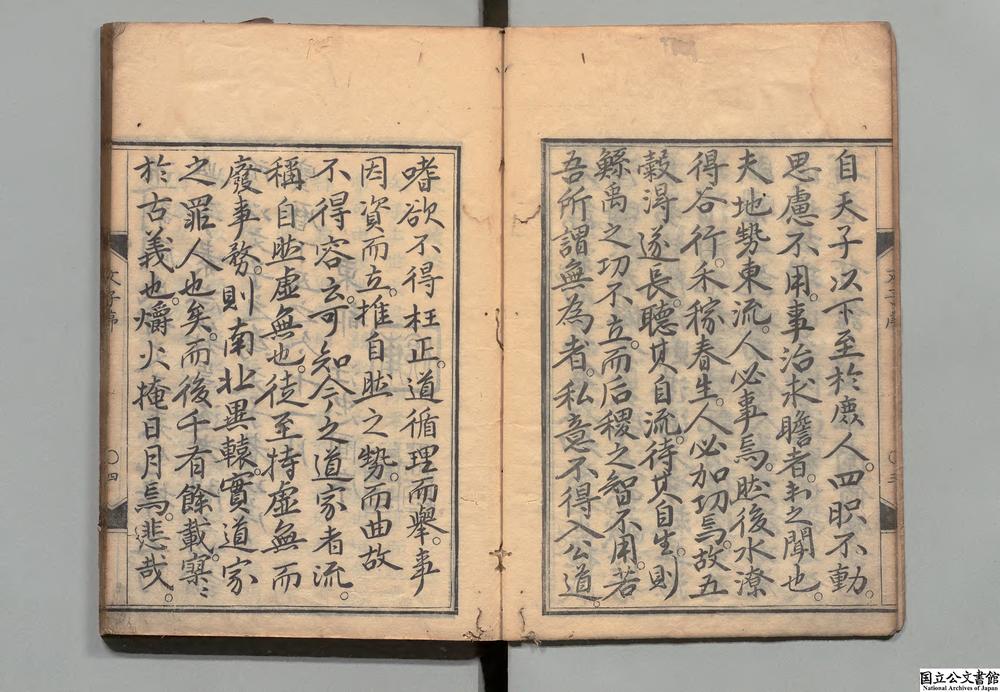 自天子以下至於庶人。四職不動。
思慮不用。事治求贍者。未之聞也。
夫地勢東流。人必事焉。然後水潦
得谷行。禾稼春生。人必加功焉。故五
穀得遂長。聽其自流。待其自生。則
鯀禹之功不立。而后稷之智不用。若
吾所謂無為者。私意不得入公道。
嗜欲不得枉正。道循理而舉。事
因資而立。推自然之勢。而曲故
不得容。云。可知今之道家者流。
稱自然虛無也。徒至持虛無而
廢事務。則南北異轅。實道家
之罪人也矣。而後千有餘載。寥〻
於古義也。爝火掩日月焉。悲哉。
文子序
〇三
文子序
〇四
国立公文書館
National Archives of Japan